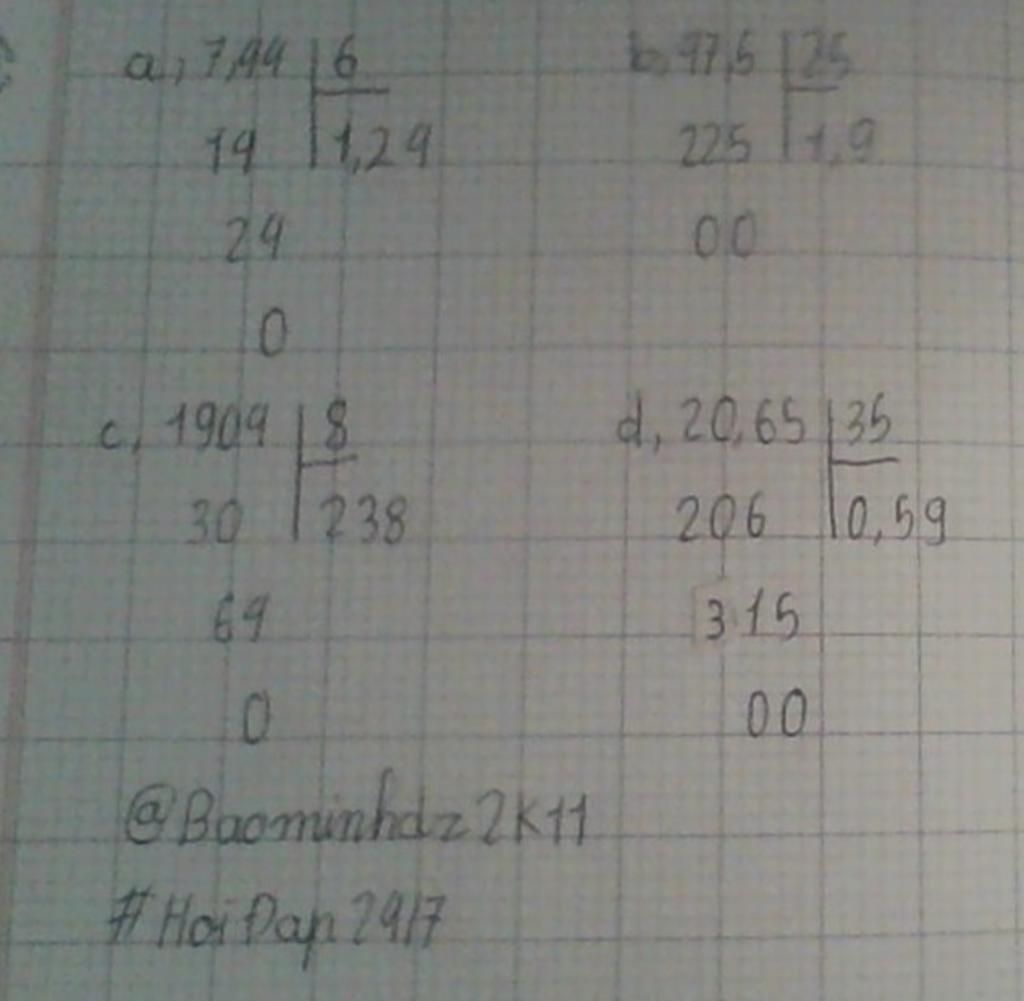 a, 7,44 | 6
14 | 1,24
24
0
b, 47,5 | 25
225 | 1,9
00
c, 1904 | 8
30 | 238
64
0
d, 20,65 | 35
206 | 0,59
315
00
@Baominhdz2K11
#HoiDap24/7